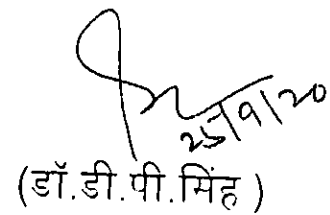 25/9/20
(डॉ.डी.पी.सिंह )